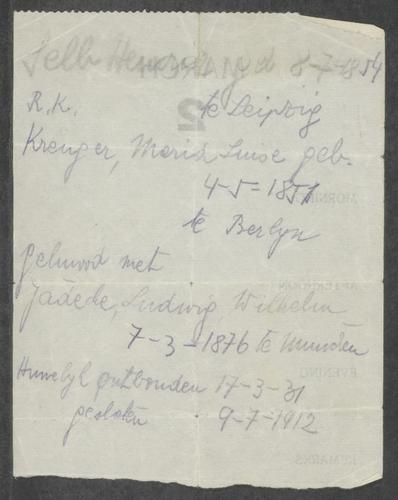 Selb Henry gd 8-7-1854
R.K. te Leipzig
Kreuger, Maria Luise geb.
4-5-1851
te Berlyn
gehuwd met
Jädede, Ludwig, Wilhelm
7-3-1876 te Munden
Huwelyk ontbonden 17-3-31
gesloten 9-7-1912
2
MORNING
EVENING
REMARKS